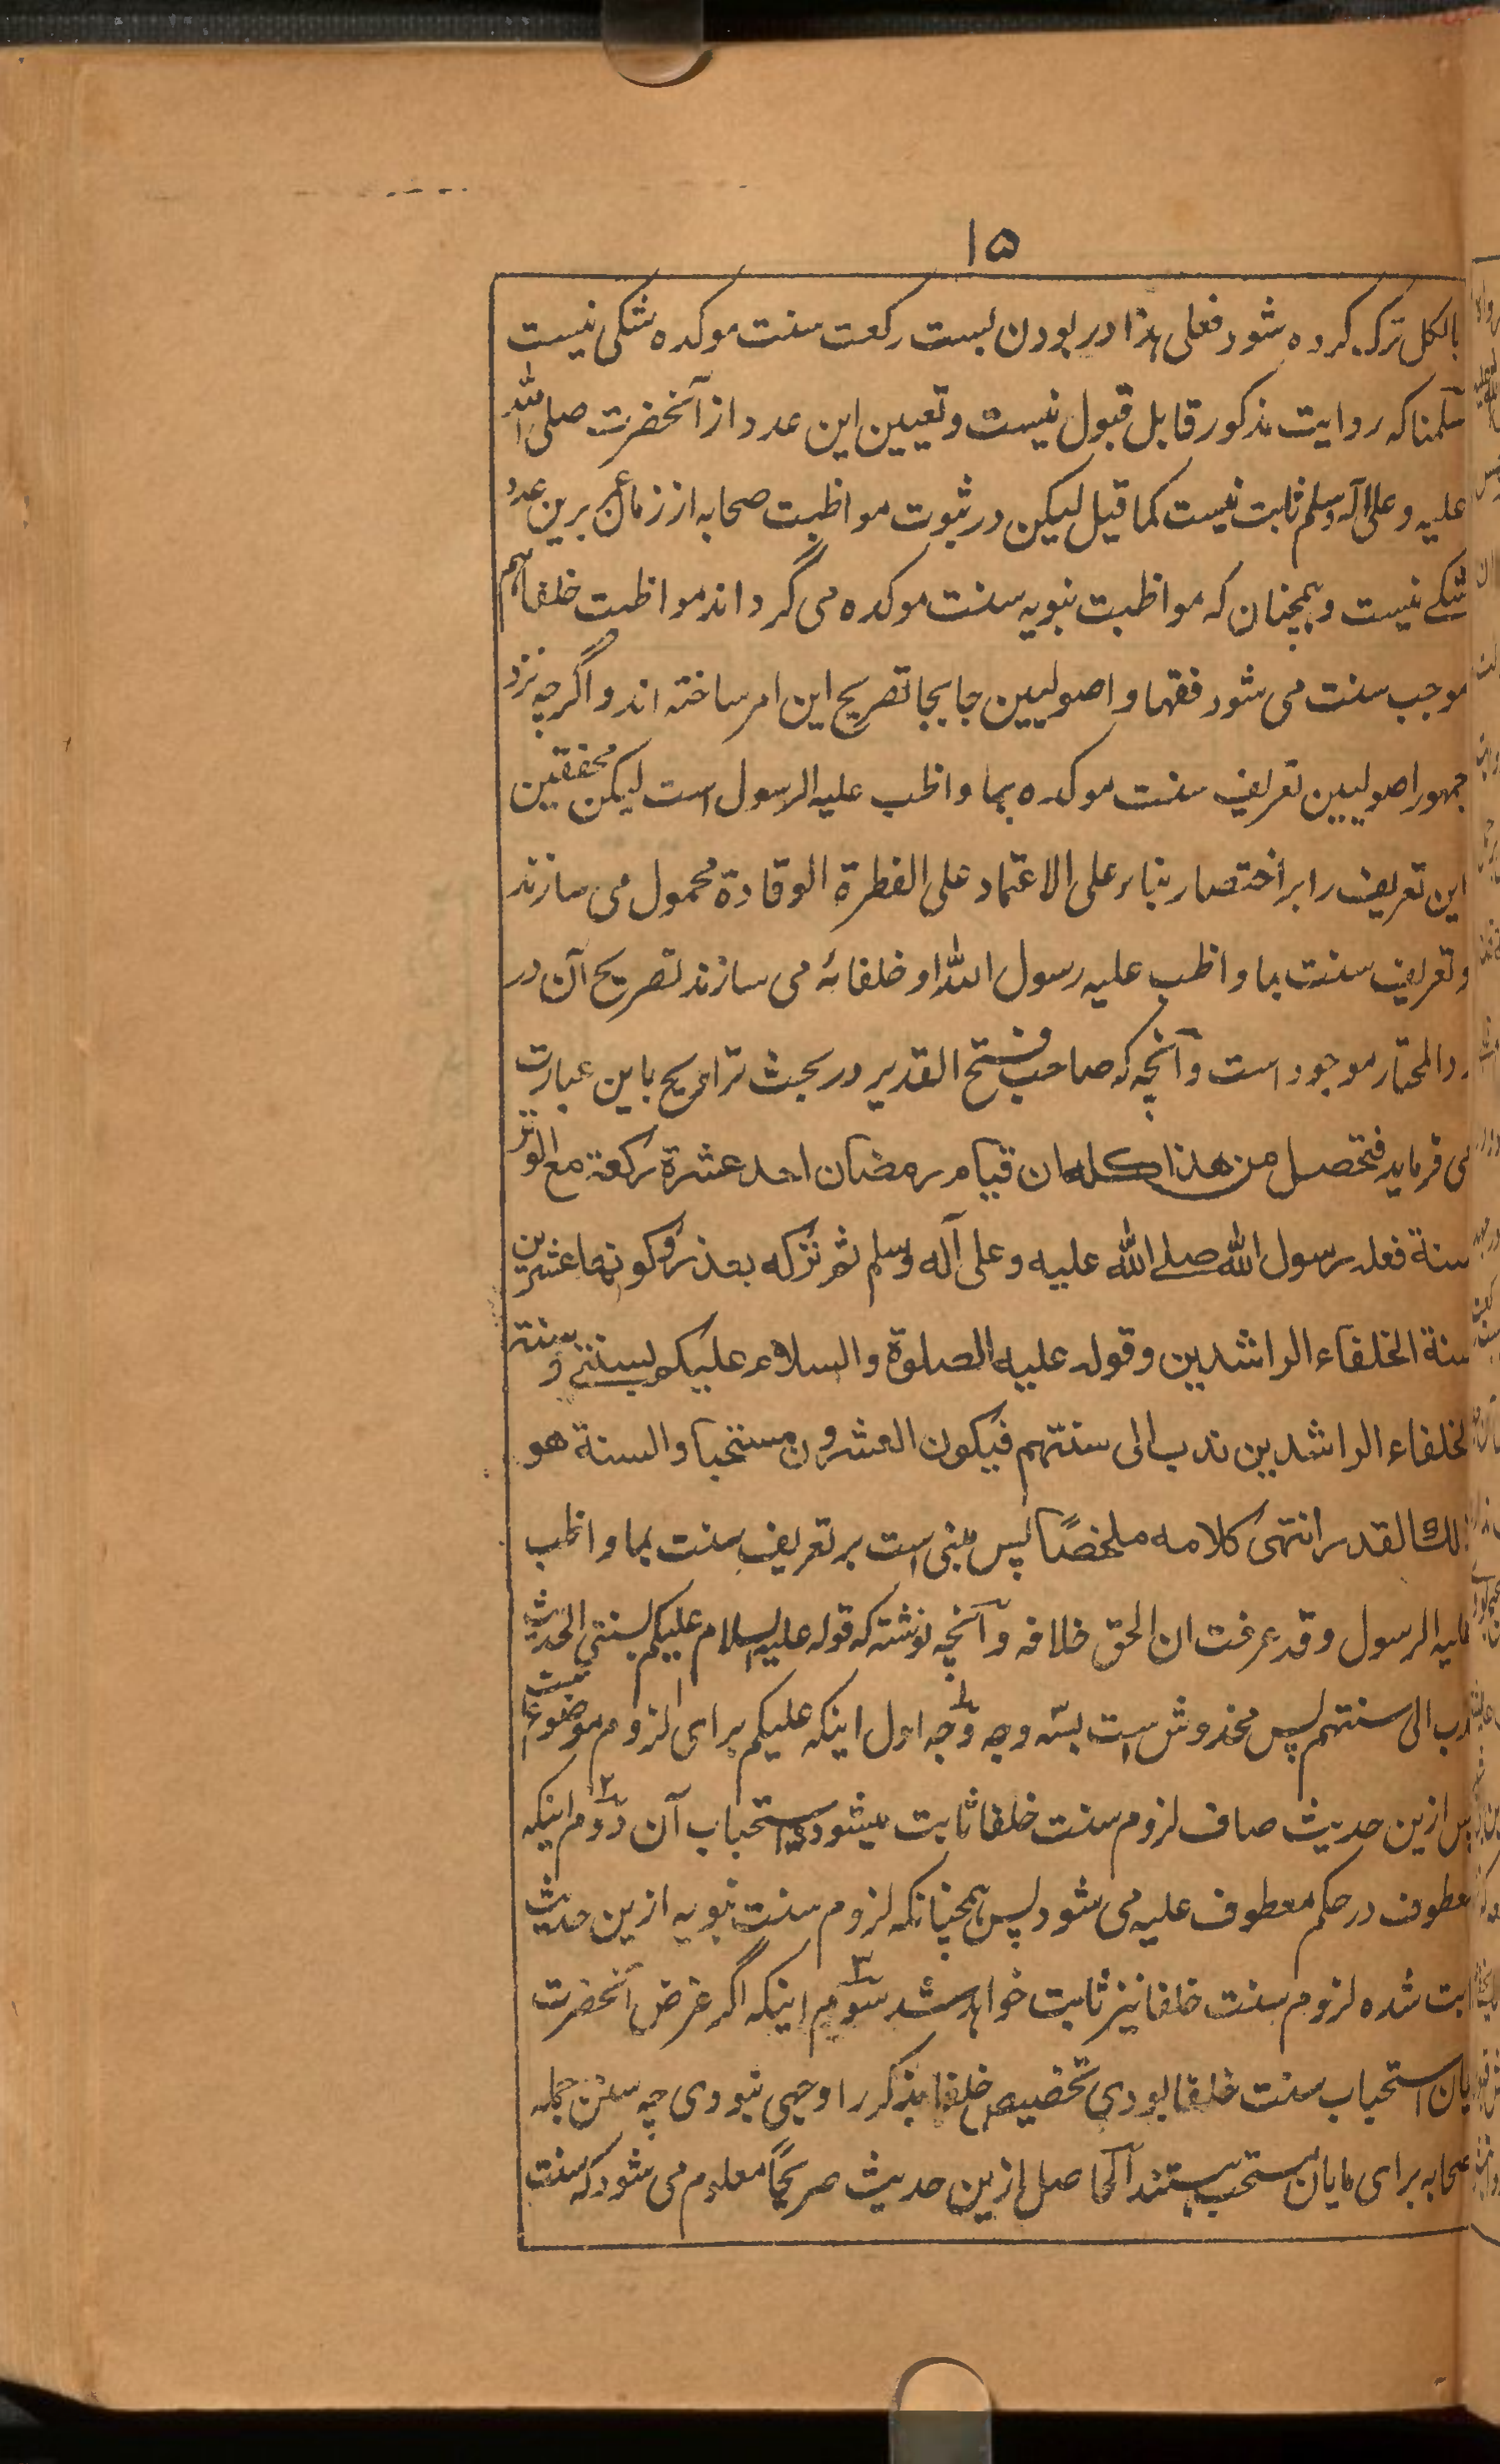 ۱۵
بالکل ترک کرده شود فعلی هذا در بودن بست رکعت سنت موکده شکی نیست
سلمنا که روایت مذکور قابل قبول نیست و تعیین این عدد از آنحضرت صلی الله
علیه و علی آله وسلم ثابت نیست کما قیل لیکن در ثبوت مواظبت صحابه از زمان عمر برین عدد
شکے نیست و همچنان که مواظبت نبویه سنت موکده می گرداند مواظبت خلفا هم
موجب سنت می شود فقها و اصولیین جابجا تصریح این امر ساخته اند و اگرچه نزد
جمهور اصولیین تعریف سنت موکده بما واظب علیه الرسول است لیکن محققین
این تعریف را بر اختصار بناء علی الاعتماد علی الفطرة الوقادة محمول می سازند
و تعریف سنت بما واظب علیه رسول الله او خلفائه می سازند تصریح آن در
ردالمحتار موجود است و آنچه که صاحب فتح القدیر در بحث تراویح باین عبارت
می فرماید فتحصل من هذا کله ان قیام رمضان احد عشرة رکعة مع الوتر
سنة فعله رسول الله صلے الله علیه و علی آله وسلم ثم ترکه بعذر و کونها عشرین
سنة الخلفاء الراشدین و قوله علیه الصلوة والسلام علیکم بسنتی و سنة
الخلفاء الراشدین ندب الی سنتهم فیکون العشرون مستحبا والسنة هو
ذلك القدر انتهی کلامه ملخصًا پس مبنی است بر تعریف سنت بما واظب
علیه الرسول و قد عرفت ان الحق خلافه و آنچه نوشته که قوله علیه السلام علیکم بسنتی الحدیث
ندب الی سنتهم پس مخدوش است بسه وجه وجه اول اینکه علیکم برای لزوم موضوع است
پس ازین حدیث صاف لزوم سنت خلفا ثابت میشود نه استحباب آن دوم اینکه
معطوف در حکم معطوف علیه می شود پس همچنانکه لزوم سنت نبویه ازین حدیث
ثابت شده لزوم سنت خلفا نیز ثابت خواهد شد سوم اینکه اگر غرض آنحضرت
بیان استحباب سنت خلفا بودی تخصیص خلفا بذکر را وجهی نبودی چه سنن جمله
صحابه برای مایان مستحب هستند الحاصل ازین حدیث صریحًا معلوم می شود که سنت